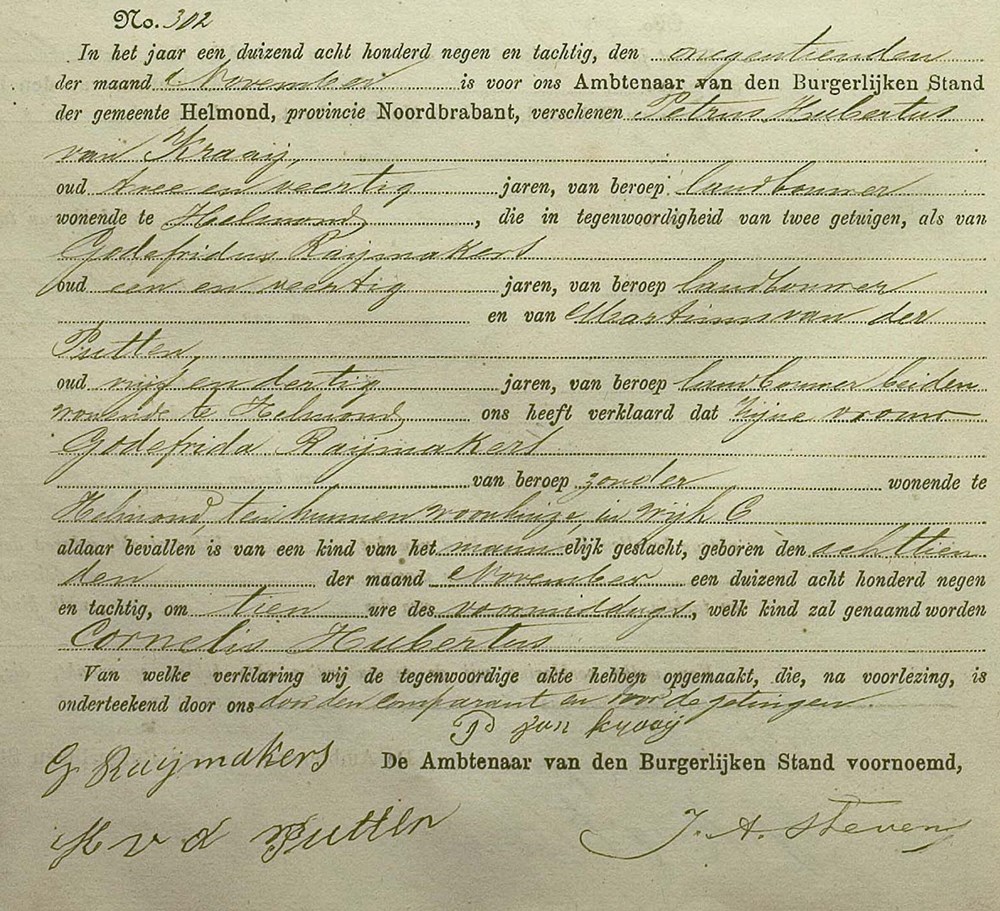 No. 302
In het jaar een duizend acht honderd negen en tachtig, den negentienden
der maand November is voor ons Ambtenaar van den Burgerlijken Stand
der gemeente Helmond, provincie Noordbrabant, verschenen Petrus Hubertus
van Kraaij,
oud twee en veertig jaren, van beroep landbouwer
wonende te Helmond, die in tegenwoordigheid van twee getuigen, als van
Godefridus Raijmakers
oud een en veertig jaren, van beroep landbouwer
en van Martinus van der
Putten,
oud vijf en dertig jaren, van beroep landbouwer beiden
wonende te Helmond ons heeft verklaard dat zijne vrouw
Godefrida Raijmakers
van beroep zonder wonende te
Helmond, ten hunnen woonhuize, in wijk C
aldaar bevallen is van een kind van het mannelijk geslacht, geboren den achttien
den der maand November een duizend acht honderd negen
en tachtig, om tien ure des voormiddags, welk kind zal genaamd worden
Cornelis Hubertus.
Van welke verklaring wij de tegenwoordige akte hebben opgemaakt, die, na voorlezing, is
onderteekend door ons door den comparant en door de getuigen.
P van kraaij
G Raijmakers De Ambtenaar van den Burgerlijken Stand voornoemd,
M v d Putten J. A. Stevens